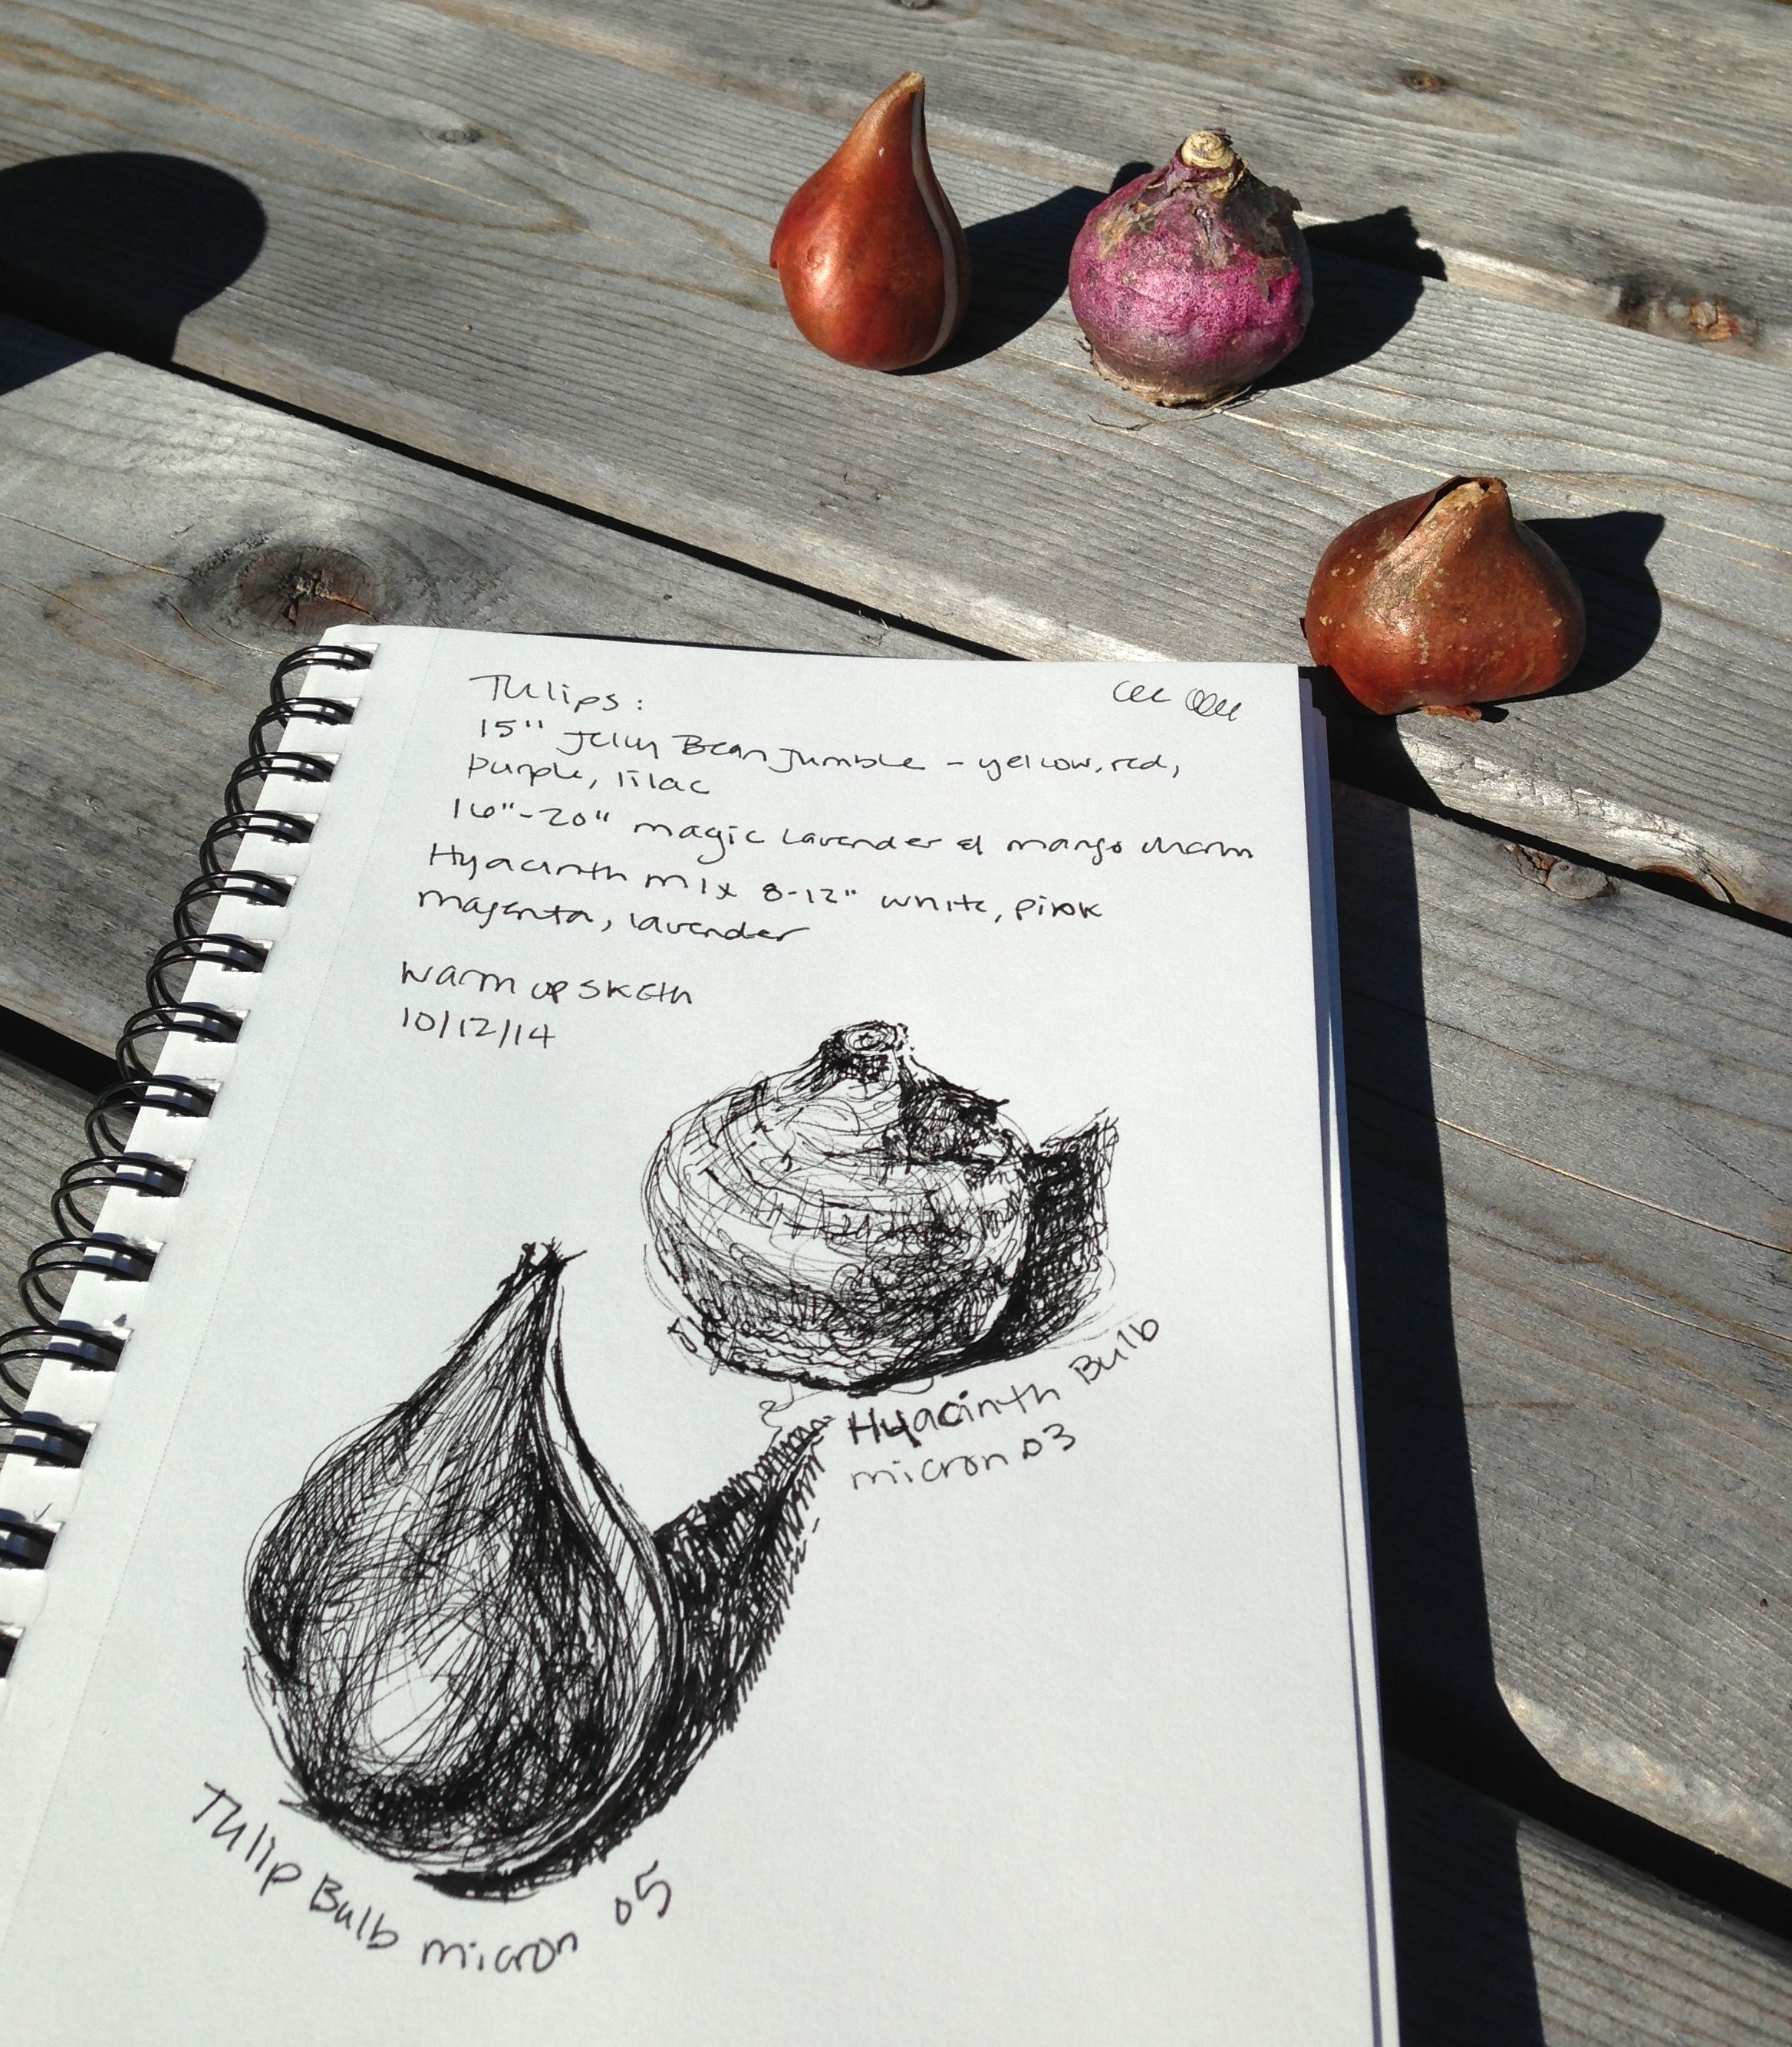 Tulips:
15" Jelly Bean Jumble - yellow, red,
purple, lilac
16"-20" magic lavender & mango charm
Hyacinth mix 8-12" white, pink
magenta, lavender
warm up sketh
10/12/14
Hyacinth Bulb
micron 03
Tulip Bulb micron 05